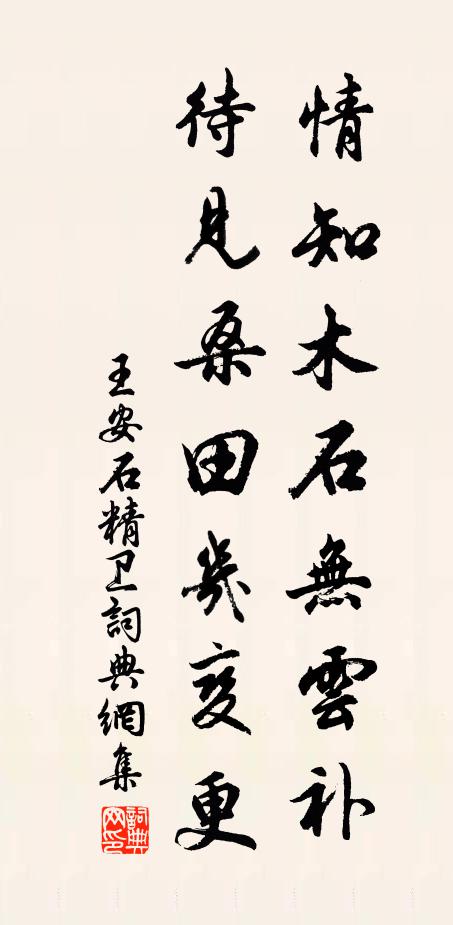 情知木石無雲补
待見桑田幾变更
王安石精卫詞典網集
詞典网印